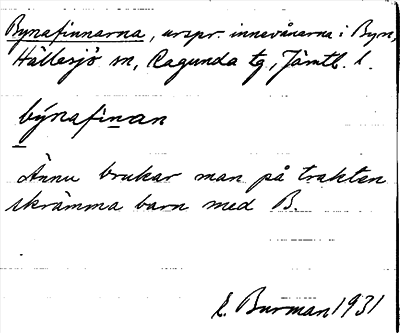 Bynafinnarna, urspr. innevånarna i Byn,
Hällesjö sn, Ragunda tg, Jämtl. l.
býnafinan
Ännu brukar man på trakten
skrämma barn med B.
E. Burman 1931